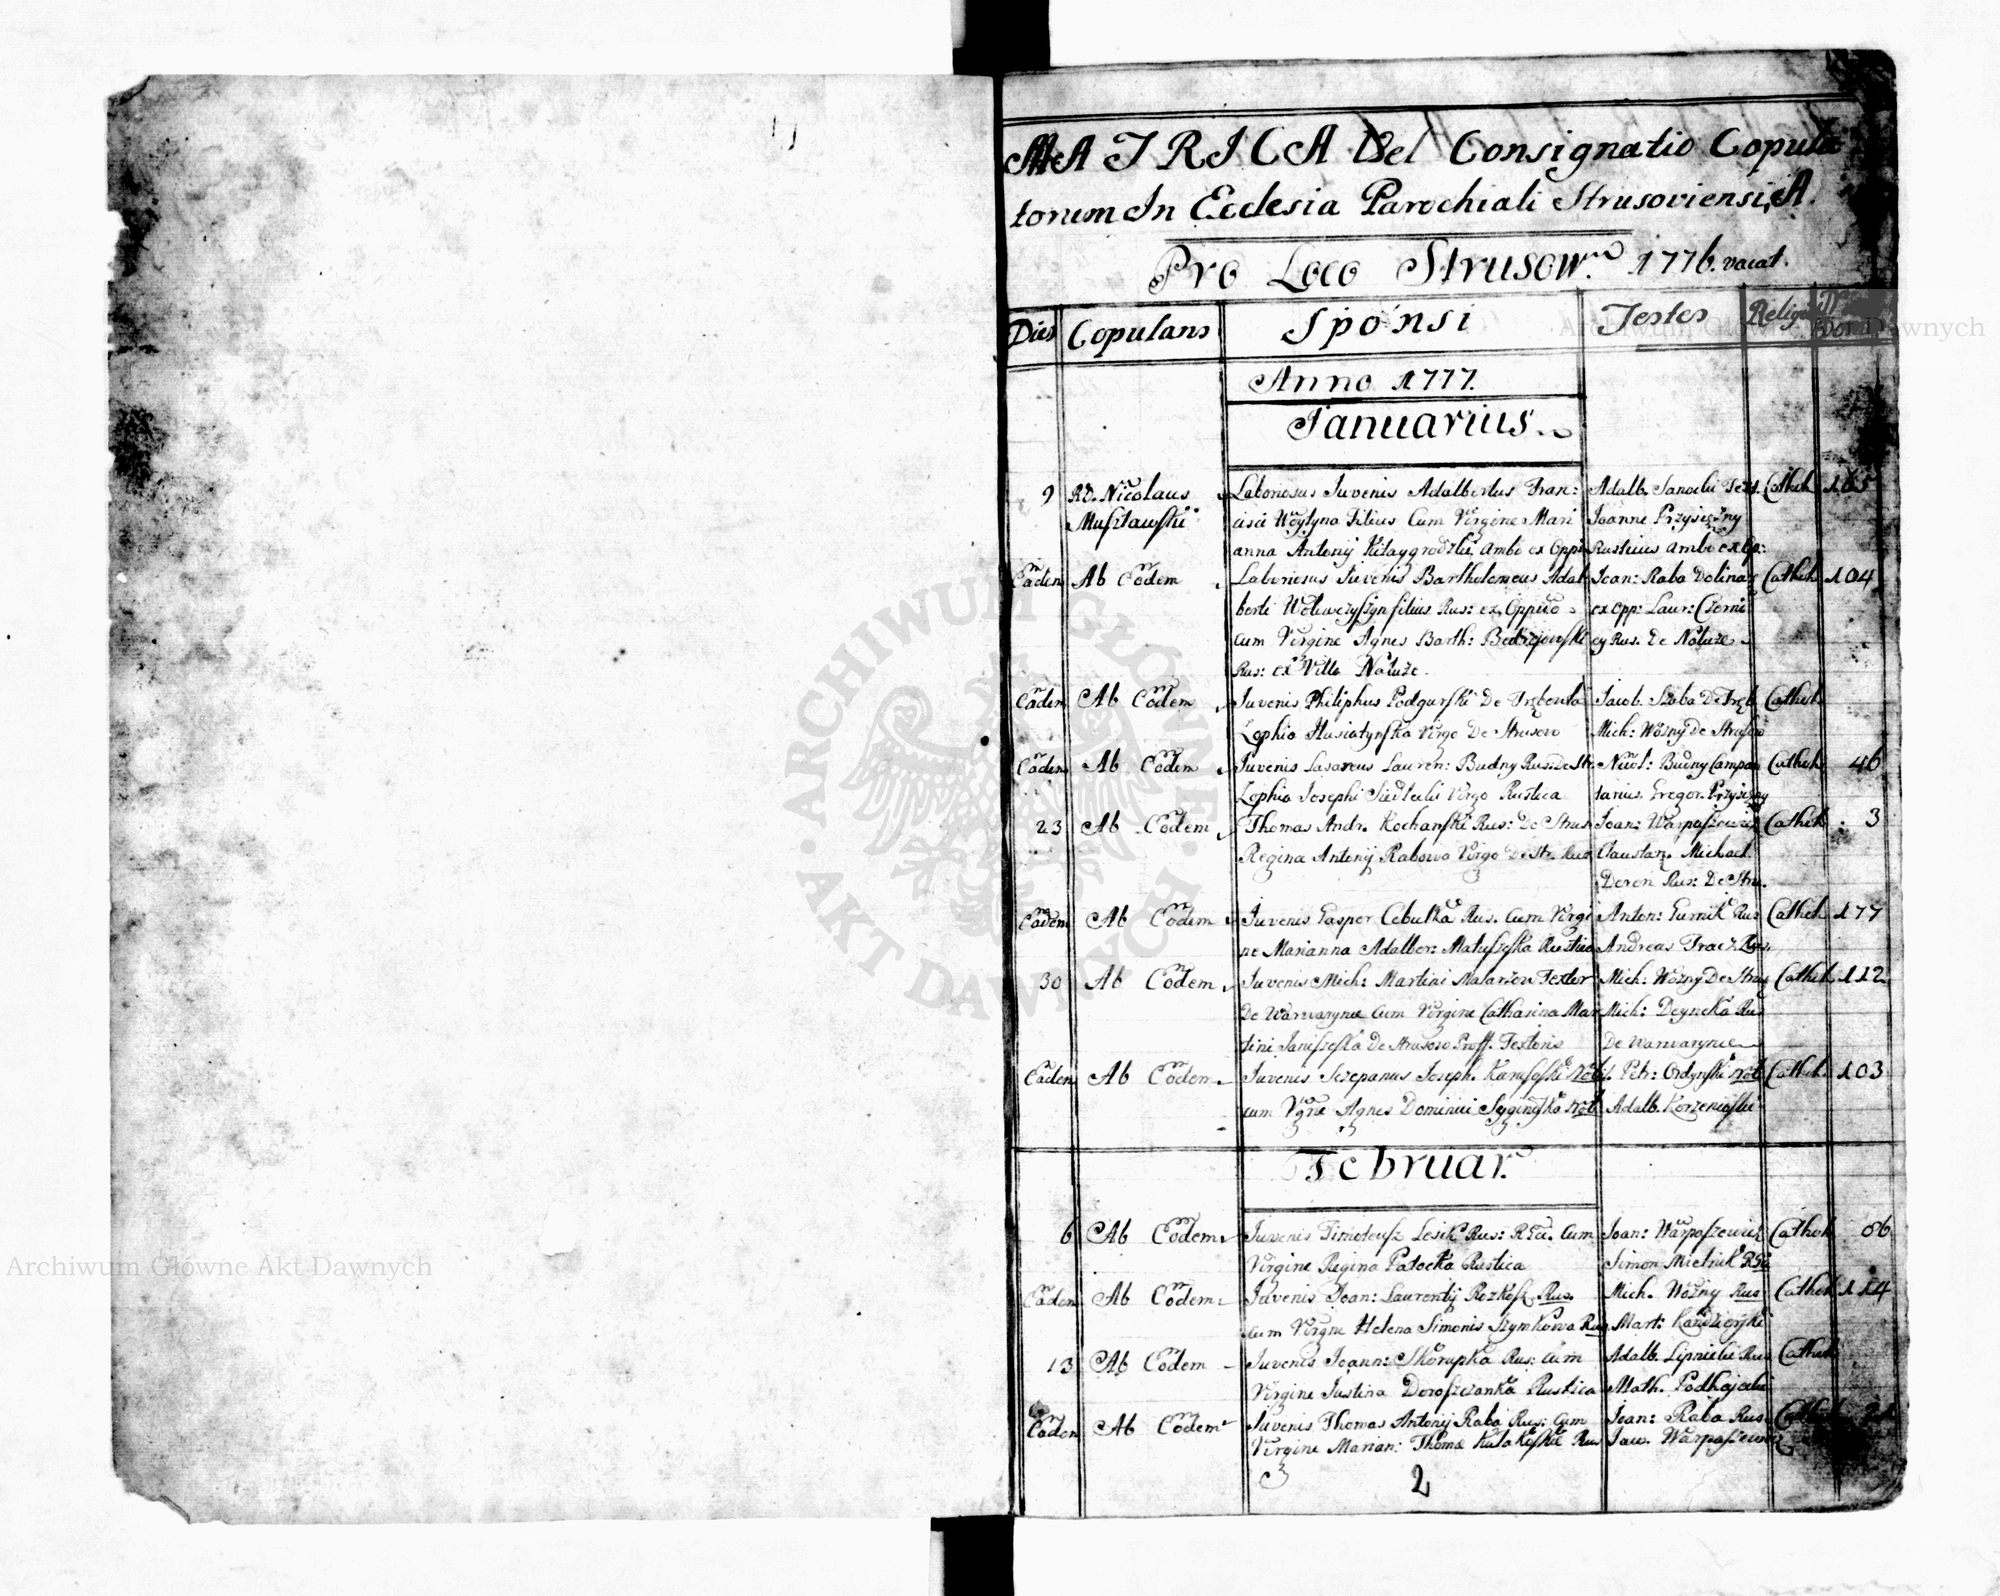 MATRICA Vel Consignatio Copula
torum In Ecclesia Parochiali Strusoviensi, A.
Pro Loco Strusow. 1776. vacat.
Dies Copulans Sponsi Testes Religio
Anno 1777.
Januarius.
9 RD. Nicolaus Laboriosus Juvenis Adalbertus Fran: Adalb. Cathol. 165
cisci Woytyna Filius Cum Virgine Mari Joanne Przysiężny
anna Antonij Kitaygrodzki, ambo ex Oppi: Rusticus ambo ex Op:
Eadem Ab Eodem Laboriosus Juvenis Bartholomeus Adal Joan: Raba Dolina Cathol. 104
berti filius Rus: ex Oppido ex Opp: Laur: Czerni
cum Virgine Agnes Barth: cy Rus. de Nałuże
Rus: ex Villa Nałuże.
Eadem Ab Eodem Juvenis Philiphus Podgurski De Trębowla Jacob. De Tręb. Cathol.
Zophia Husiatynska Virgo De Strusow Mich: Wozny De Strusow
Eadem Ab Eodem Juvenis Lasarus Lauren: Budny Rus: De Str. Nicol: Budny Campa Cathol. 46
Zophia Josephi Siedlecki Virgo Rustica tarius. Gregor. Przysiężny
23 Ab Eodem Thomas Andr. Kochanski Rus: De Strus Joan: Warpaszewicz Cathol. 3
Regina Antonij Rabowa Virgo De Str. Rus Michael
Deren Rus: De Stru.
Eadem Ab Eodem Juvenis Gasper Cebulka Rus. Cum Virgi Anton: Gurnik Rus Cathol. 177
ne Marianna Adalber: Matuszeska Rustica Andreas Tracz Rus.
30 Ab Eodem Juvenis Mich: Martini Malarzow Textor Mich: Wozny De Strus Cathol. 112
De Warwarynce Cum Virgine Catharina Mar Mich: Deyneka Rus
tini Janiszeska de Strusow Proff. Textoris De Warwarynce
Eadem Ab Eodem Juvenis Sczepanus Joseph. Petr: Ordynski Cathol. 103
cum Vgne Agnes Dominici Adalb. Korzenioski
Februar.
6 Ab Eodem Juvenis Timoteusz Lesik Rus: Cum Joan: Warpaszewicz Cathol. 86
Virgine Regina Patocka Rustica Simon Mielnik
Eadem Ab Eodem Juvenis Joan: Laurentij Rozkosz Rus. Mich. Wozny Rus Cathol. 114
cum Virgne Helena Simonis Szymkowa Rus Mart:
13 Ab Eodem Juvenis Joann: Skorupka Rus: cum Adalb. Lipnicki Rus Cathol.
Virgine Justina Doroszczanka Rustica Math. Podhajecki
Eadem Ab Eodem Juvenis Thomas Antonij Raba Rus: Cum Joan: Raba Rus.
Virgine Marian: Thomæ Rus Jaw. Warpaszewicz
2
ARCHIWUM GŁÓWNE AKT DAWNYCH
Archiwum Główne Akt Dawnych
Archiwum Główne Akt Dawnych